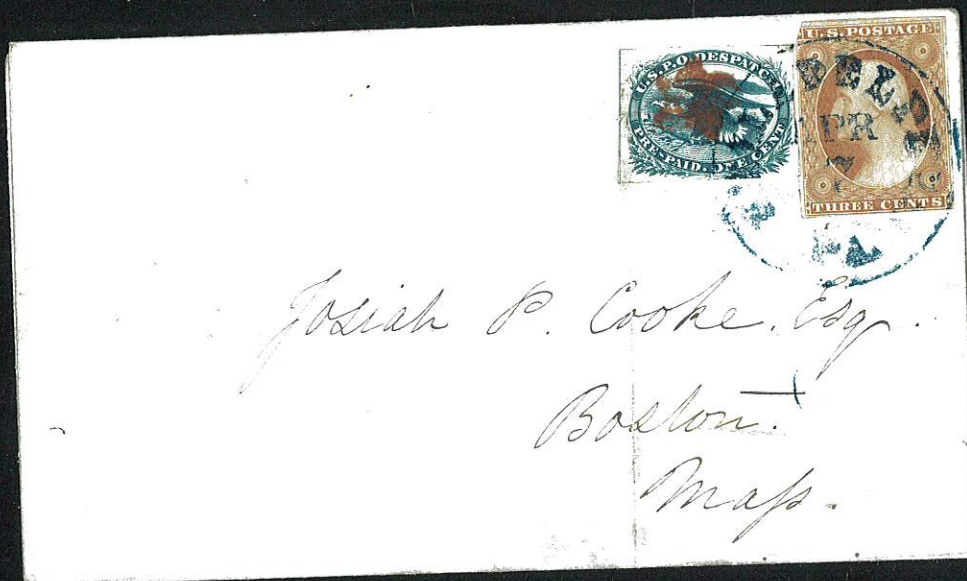 U.S.P.O. DESPATCH
PRE-PAID. ONE CENT
U.S. POSTAGE
THREE CENTS
APR
Josiah P. Cooke. Esq.
Boston.
Maſs.